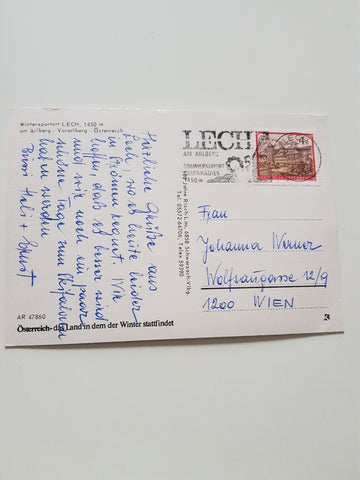 Wintersportort LECH, 1450 m
am Arlberg - Vorarlberg - Österreich
Herzliche Grüße aus
Lech, wo es heute leider
in Strömen regnet. Wir
hoffen, daß es besser wird
und wir noch ein paar
schöne Tage zum Skifahren
haben werden
Bussi Heli + Ernst
AR 47860
Österreich - das Land in dem der Winter stattfindet
LECH
AM ARLBERG
SOMMERKURORT
1450 m
6858 Schwarzach-Vlbg.
Tel. 05572-64706, Telex 59390
Frau
Johanna Werner
Wolfsaugasse 12/9
1200 WIEN